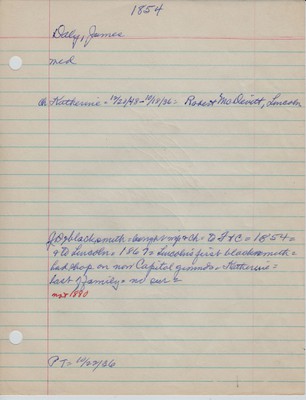 1854
Daly, James
med
ch Katherine = 12/20/48-11/18/36 = Robert McDevitt, Lincoln
J D = blacksmith = brought wf & ch = to = 1854 =
& to Lincoln = 1867 = Lincoln's first blacksmith =
had shop on now Capitol grounds = Katherine =
last of family = no sur
1890
PT =